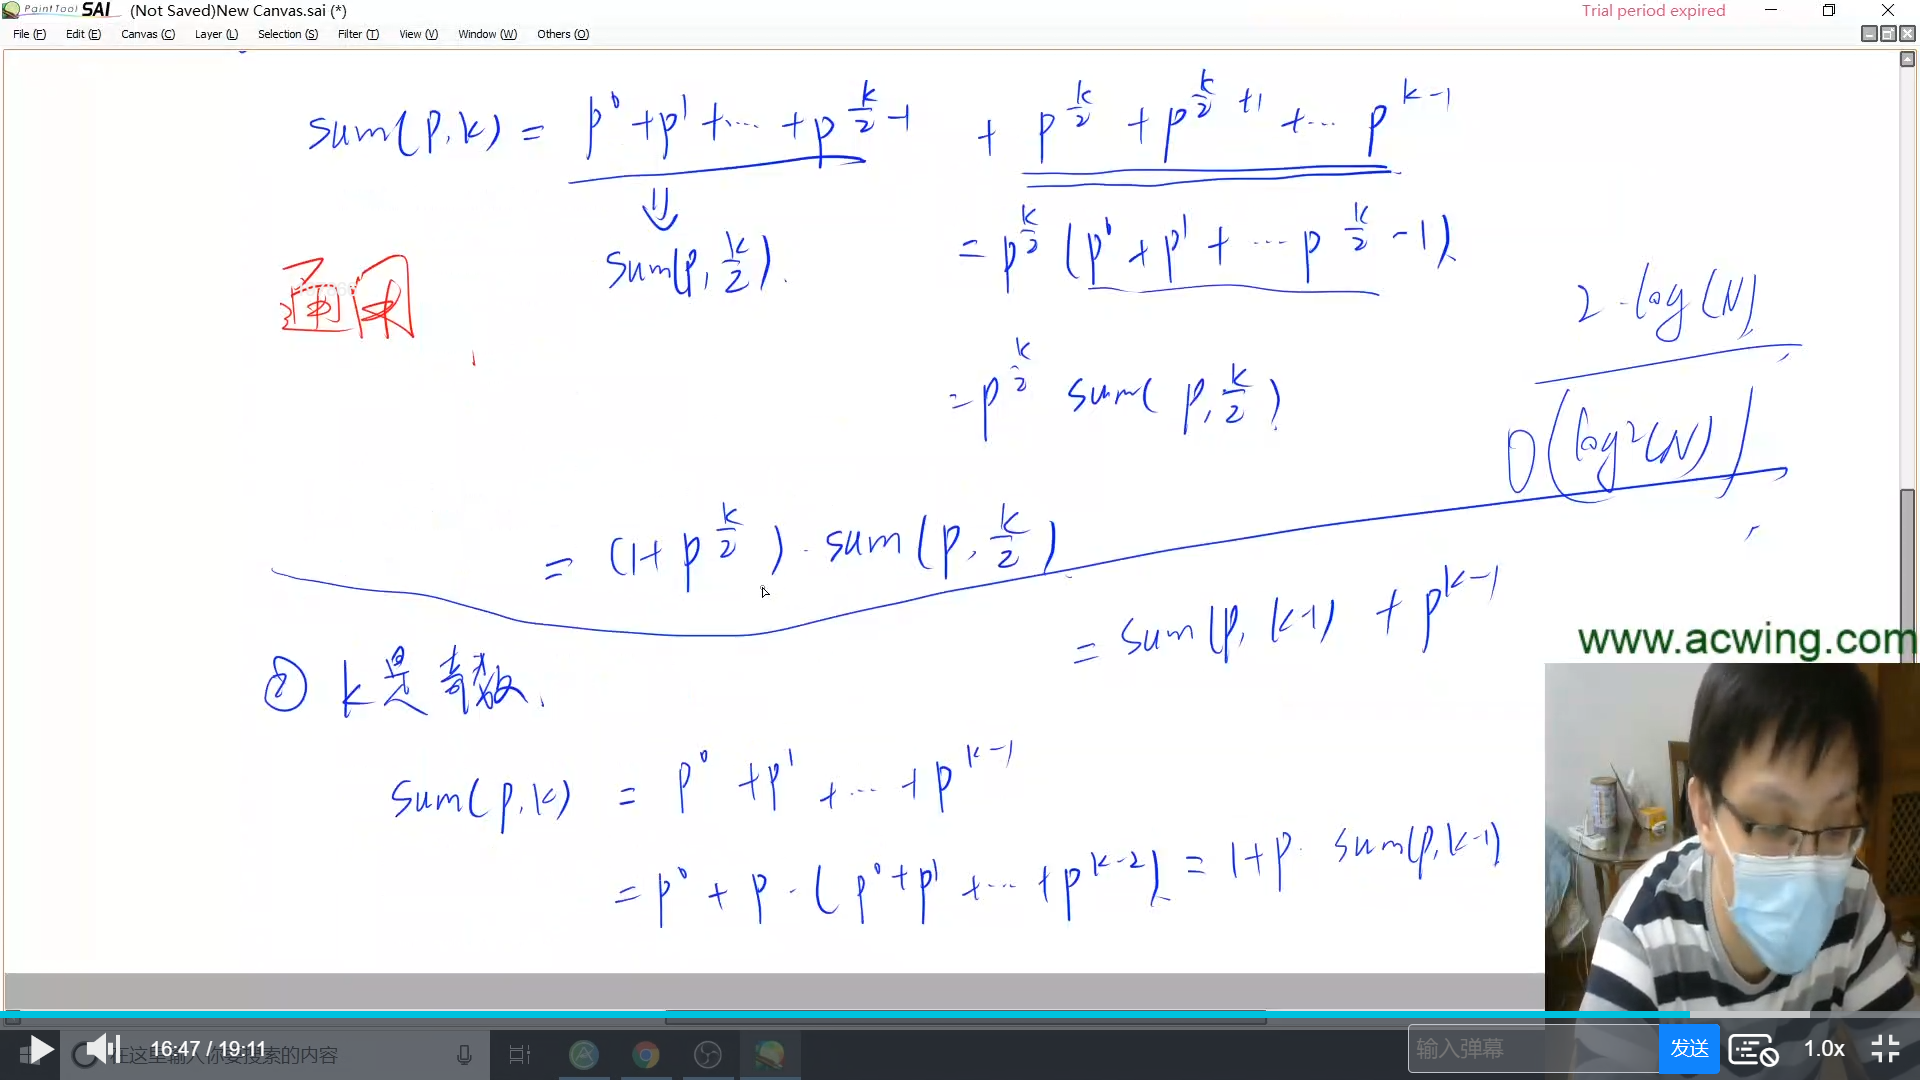 PaintTool SAI (Not Saved)New Canvas.sai (*) Trial period expired
File (F) Edit (E) Canvas (C) Layer (L) Selection (S) Filter (T) View (V) Window (W) Others (O)
sum(p,k) = p^0 + p^1 + … + p^{k/2 - 1} + p^{k/2} + p^{k/2 + 1} + … p^{k-1}
sum(p, k/2). = p^{k/2} (p^0 + p^1 + … p^{k/2 - 1})
2·log(N)
= p^{k/2} sum(p, k/2)
O(log²(N))
= (1 + p^{k/2}) · sum(p, k/2)
= sum(p, k-1) + p^{k-1}
www.acwing.com
② k是奇数.
sum(p,k) = p^0 + p^1 + … + p^{k-1}
= p^0 + p · (p^0 + p^1 + … + p^{k-2}) = 1 + p · sum(p, k-1)
16:47 / 19:11
在这里输入你要搜索的内容
输入弹幕
发送
1.0x